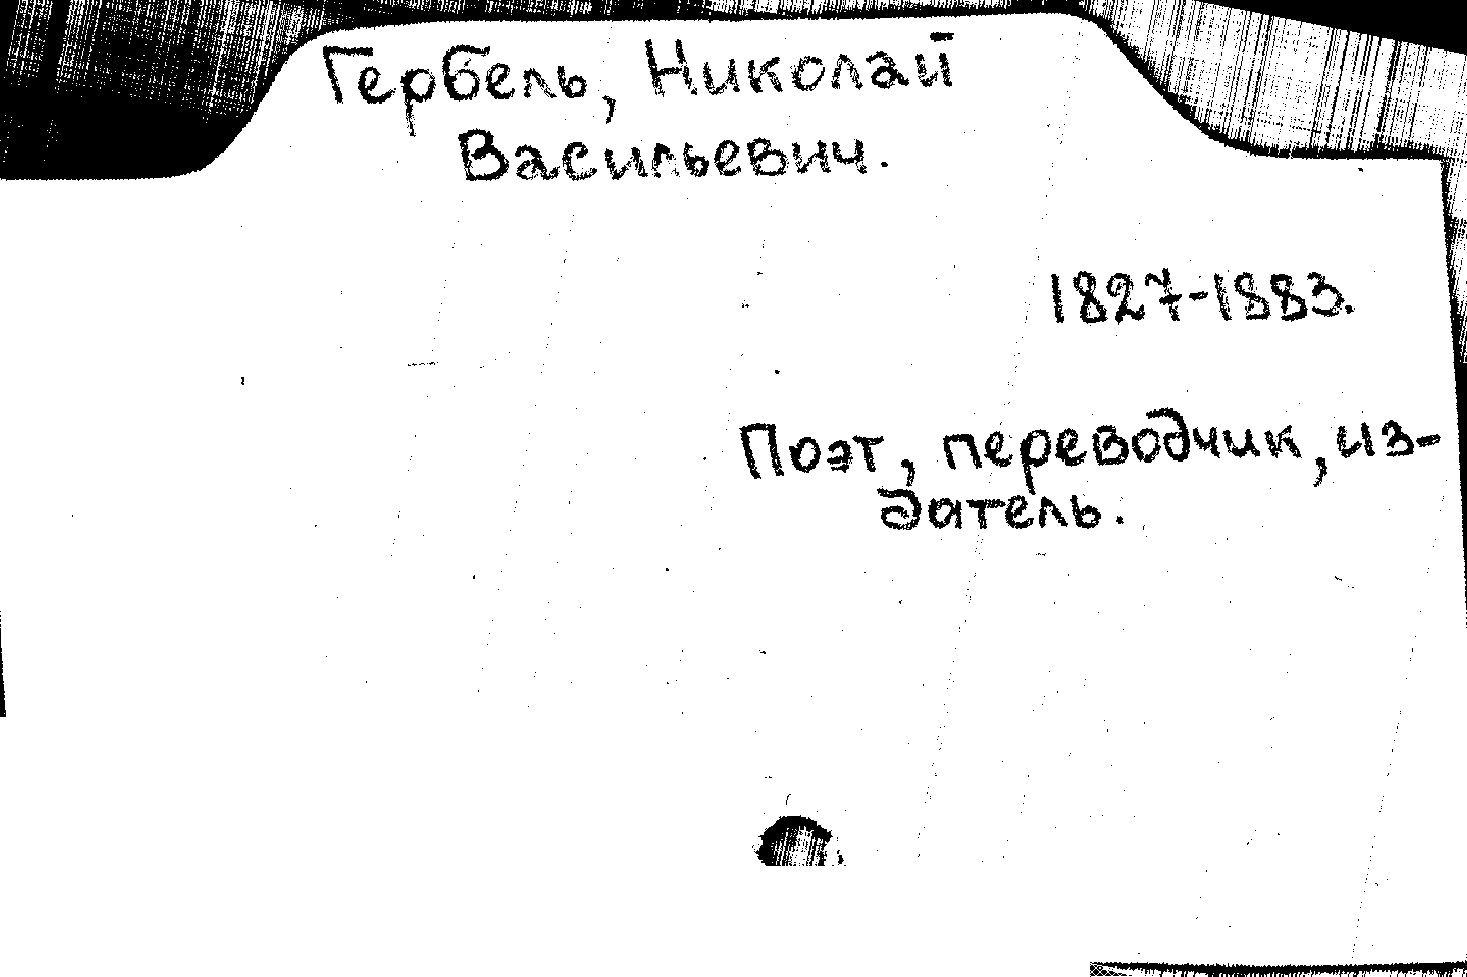 Гербель, Николай
Васильевич.
1827-1883.
Поэт, переводчик, из-
датель.